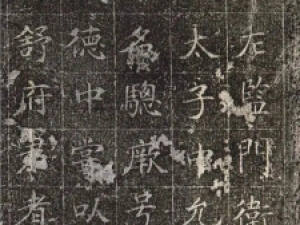 左監門衛
太子中允
名驄厥号
德中嘗以
舒府君者